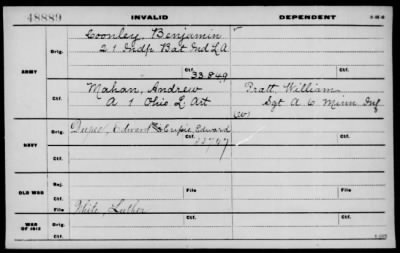 48889 INVALID DEPENDENT
Coonley, Benjamin
Orig. 21 Indp. Bat Ind L A Orig.
Ctf. 33849 Ctf.
ARMY
Mahan, Andrew Pratt, William
Ctf. A 1 Ohio L Art Ctf. Sgt A 6 Minn Inf
(W)
Orig. Edward Edward Orig.
NAVY
Ctf. Ctf.
Rej.
OLD WAR
Ctf. File File
White, Luther
WAR OF 1812
Orig. Ctf. Orig. Ctf.